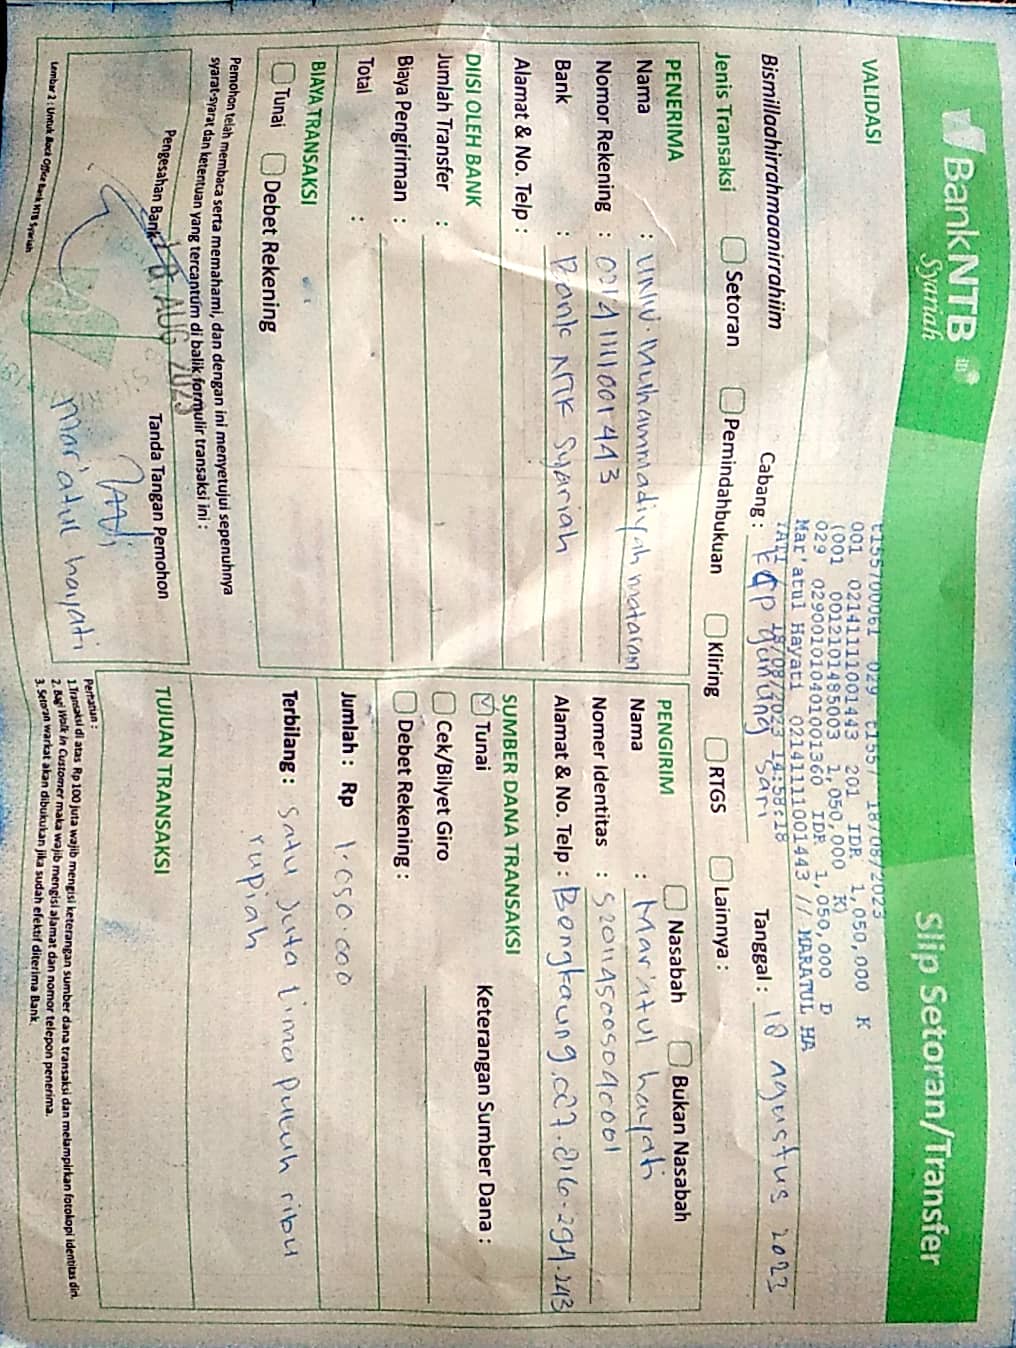 BankNTB
Syariah
Slip Setoran/Transfer
VALIDASI
t155700061 029 t1557 18/08/2023
001 0214111001443 201 IDR 1,050,000 K
(001 0012101485003 1,050,000 K)
029 0290010104010013 60 IDR 1,050,000 D
Mar'atul Hayati 0214111001443 // MARATUL HA
YATI 18/08/2023 14:58:18
Bismillaahirrahmaanirrahiim
Cabang : KCP gunung sari
Tanggal : 18 agustus 2023
Jenis Transaksi
Setoran
Pemindahbukuan
Kliring
RTGS
Lainnya :
PENERIMA
Nama : UNIV. Muhammadiyah mataram
Nomor Rekening : 0214111001443
Bank : Bank NTB Syariah
Alamat & No. Telp :
PENGIRIM
Nasabah
Bukan Nasabah
Nama : Mar'atul hayati
Nomer Identitas :
Alamat & No. Telp :
DIISI OLEH BANK
Jumlah Transfer :
Biaya Pengiriman :
Total :
SUMBER DANA TRANSAKSI
Tunai
Keterangan Sumber Dana :
Cek/Bilyet Giro
Debet Rekening :
BIAYA TRANSAKSI
Tunai
Debet Rekening
Jumlah : Rp 1.050.000
Terbilang : Satu Juta Lima puluh ribu
rupiah
Pemohon telah membaca serta memahami, dan dengan ini menyetujui sepenuhnya
syarat-syarat dan ketentuan yang tercantum di balik formulir transaksi ini :
Pengesahan Bank
18 AUG 2023
Tanda Tangan Pemohon
Mar'atul hayati
TUJUAN TRANSAKSI
Perhatian :
1.Transaksi di atas Rp 100 juta wajib mengisi keterangan sumber dana transaksi dan melampirkan fotokopi identitas diri.
2. Bagi Walk in Customer maka wajib mengisi alamat dan nomor telepon penerima.
3. Setoran warkat akan dibukukan jika sudah efektif diterima Bank.
Lembar 2 : Untuk Back Office Bank NTB Syariah